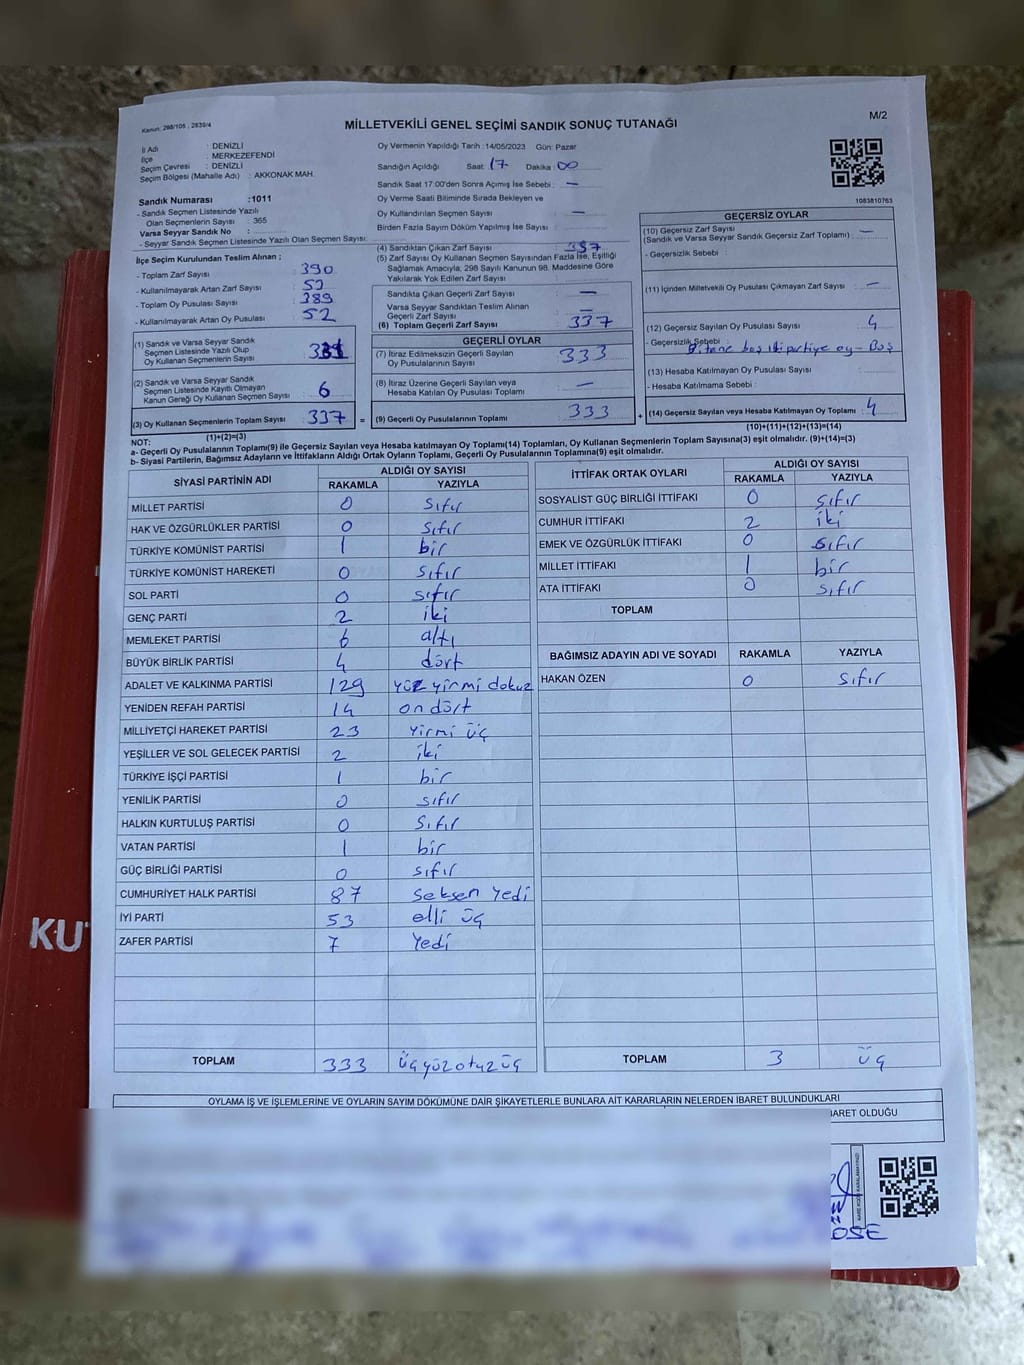 Kanun: 298/105 , 2839/4
MİLLETVEKİLİ GENEL SEÇİMİ SANDIK SONUÇ TUTANAĞI
M/2
İl Adı : DENİZLİ
İlçe : MERKEZEFENDİ
Seçim Çevresi : DENİZLİ
Seçim Bölgesi (Mahalle Adı) : AKKONAK MAH.
Sandık Numarası :1011
- Sandık Seçmen Listesinde Yazılı
Olan Seçmenlerin Sayısı : 365
Varsa Seyyar Sandık No :
- Seyyar Sandık Seçmen Listesinde Yazılı Olan Seçmen Sayısı:
Oy Vermenin Yapıldığı Tarih : 14/05/2023 Gün: Pazar
Sandığın Açıldığı Saat: 17 Dakika: 00
Sandık Saat 17:00'den Sonra Açımış İse Sebebi : —
Oy Verme Saati Bitiminde Sırada Bekleyen ve
Oy Kullandırılan Seçmen Sayısı : —
Birden Fazla Sayım Döküm Yapılmış İse Sayısı :
1083810763
İlçe Seçim Kurulundan Teslim Alınan ;
- Toplam Zarf Sayısı : 390
- Kullanılmayarak Artan Zarf Sayısı : 53
- Toplam Oy Pusulası Sayısı : 389
- Kullanılmayarak Artan Oy Pusulası : 52
(1) Sandık ve Varsa Seyyar Sandık
Seçmen Listesinde Yazılı Olup
Oy Kullanan Seçmenlerin Sayısı : 331
(2) Sandık ve Varsa Seyyar Sandık
Seçmen Listesinde Kayıtlı Olmayan
Kanun Gereği Oy Kullanan Seçmen Sayısı : 6
(3) Oy Kullanan Seçmenlerin Toplam Sayısı : 337
(1)+(2)=(3)
(4) Sandıktan Çıkan Zarf Sayısı : 337
(5) Zarf Sayısı Oy Kullanan Seçmen Sayısından Fazla İse, Eşitliği
Sağlamak Amacıyla, 298 Sayılı Kanunun 98. Maddesine Göre
Yakılarak Yok Edilen Zarf Sayısı :
Sandıkta Çıkan Geçerli Zarf Sayısı : —
Varsa Seyyar Sandıktan Teslim Alınan
Geçerli Zarf Sayısı : —
(6) Toplam Geçerli Zarf Sayısı : 337
GEÇERLİ OYLAR
(7) İtiraz Edilmeksizin Geçerli Sayılan
Oy Pusulasının Sayısı : 333
(8) İtiraz Üzerine Geçerli Sayılan veya
Hesaba Katılan Oy Pusulası Sayısı : —
= (9) Geçerli Oy Pusulalarının Toplamı : 333
GEÇERSİZ OYLAR
(10) Geçersiz Zarf Sayısı : —
(Sandık ve Varsa Seyyar Sandık Geçersiz Zarf Toplamı)
- Geçersizlik Sebebi :
(11) İçinden Milletvekili Oy Pusulası Çıkmayan Zarf Sayısı : —
(12) Geçersiz Sayılan Oy Pusulası Sayısı : 4
- Geçersizlik Sebebi : Bitane boş iki partiye oy- Boş
(13) Hesaba Katılmayan Oy Pusulası Sayısı :
- Hesaba Katılmama Sebebi :
+ (14) Geçersiz Sayılan veya Hesaba Katılmayan Oy Toplamı : 4
(10)+(11)+(12)+(13)=(14)
NOT:
a- Geçerli Oy Pusulalarının Toplamı(9) ile Geçersiz Sayılan veya Hesaba katılmayan Oy Toplamı(14) Toplamları, Oy Kullanan Seçmenlerin Toplam Sayısına(3) eşit olmalıdır. (9)+(14)=(3)
b- Siyasi Partilerin, Bağımsız Adayların ve İttifakların Aldığı Ortak Oyların Toplamı, Geçerli Oy Pusulalarının Toplamına(9) eşit olmalıdır.
SİYASİ PARTİNİN ADI
ALDIĞI OY SAYISI
RAKAMLA YAZIYLA
MİLLET PARTİSİ 0 sıfır
HAK VE ÖZGÜRLÜKLER PARTİSİ 0 sıfır
TÜRKİYE KOMÜNİST PARTİSİ 1 bir
TÜRKİYE KOMÜNİST HAREKETİ 0 sıfır
SOL PARTİ 0 sıfır
GENÇ PARTİ 2 iki
MEMLEKET PARTİSİ 6 altı
BÜYÜK BİRLİK PARTİSİ 4 dört
ADALET VE KALKINMA PARTİSİ 129 yüz yirmi dokuz
YENİDEN REFAH PARTİSİ 14 on dört
MİLLİYETÇİ HAREKET PARTİSİ 23 yirmi üç
YEŞİLLER VE SOL GELECEK PARTİSİ 2 iki
TÜRKİYE İŞÇİ PARTİSİ 1 bir
YENİLİK PARTİSİ 0 sıfır
HALKIN KURTULUŞ PARTİSİ 0 sıfır
VATAN PARTİSİ 1 bir
GÜÇ BİRLİĞİ PARTİSİ 0 sıfır
CUMHURİYET HALK PARTİSİ 87 seksen yedi
İYİ PARTİ 53 elli üç
ZAFER PARTİSİ 7 yedi
TOPLAM 333 üçyüzotuzüç
İTTİFAK ORTAK OYLARI
ALDIĞI OY SAYISI
RAKAMLA YAZIYLA
SOSYALIST GÜÇ BİRLİĞİ İTTİFAKI 0 sıfır
CUMHUR İTTİFAKI 2 iki
EMEK VE ÖZGÜRLÜK İTTİFAKI 0 sıfır
MİLLET İTTİFAKI 1 bir
ATA İTTİFAKI 0 sıfır
TOPLAM
BAĞIMSIZ ADAYIN ADI VE SOYADI RAKAMLA YAZIYLA
HAKAN ÖZEN 0 sıfır
TOPLAM 3 üç
OYLAMA İŞ VE İŞLEMLERİNE VE OYLARIN SAYIM DÖKÜMÜNE DAİR ŞİKAYETLERLE BUNLARA AİT KARARLARIN NELERDEN İBARET BULUNDUKLARI
BARET OLDUĞU
KU